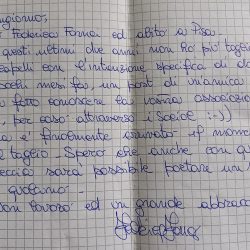 ngiorno,
Federica Forma ed abito a Pisa.
questi ultimi due anni non ho più taglia
capelli con l'intenzione specifica di do
ochi mesi fa, un post di un'amica
fatto conoscere la vostra associazio
, per caso attraverso i social :-))
a è finalmente arrivato il mome
taglio. Spero che anche con qu
eccia sarà possibile portare un s
qualcuno.
on lavoro ed un grande abbrac